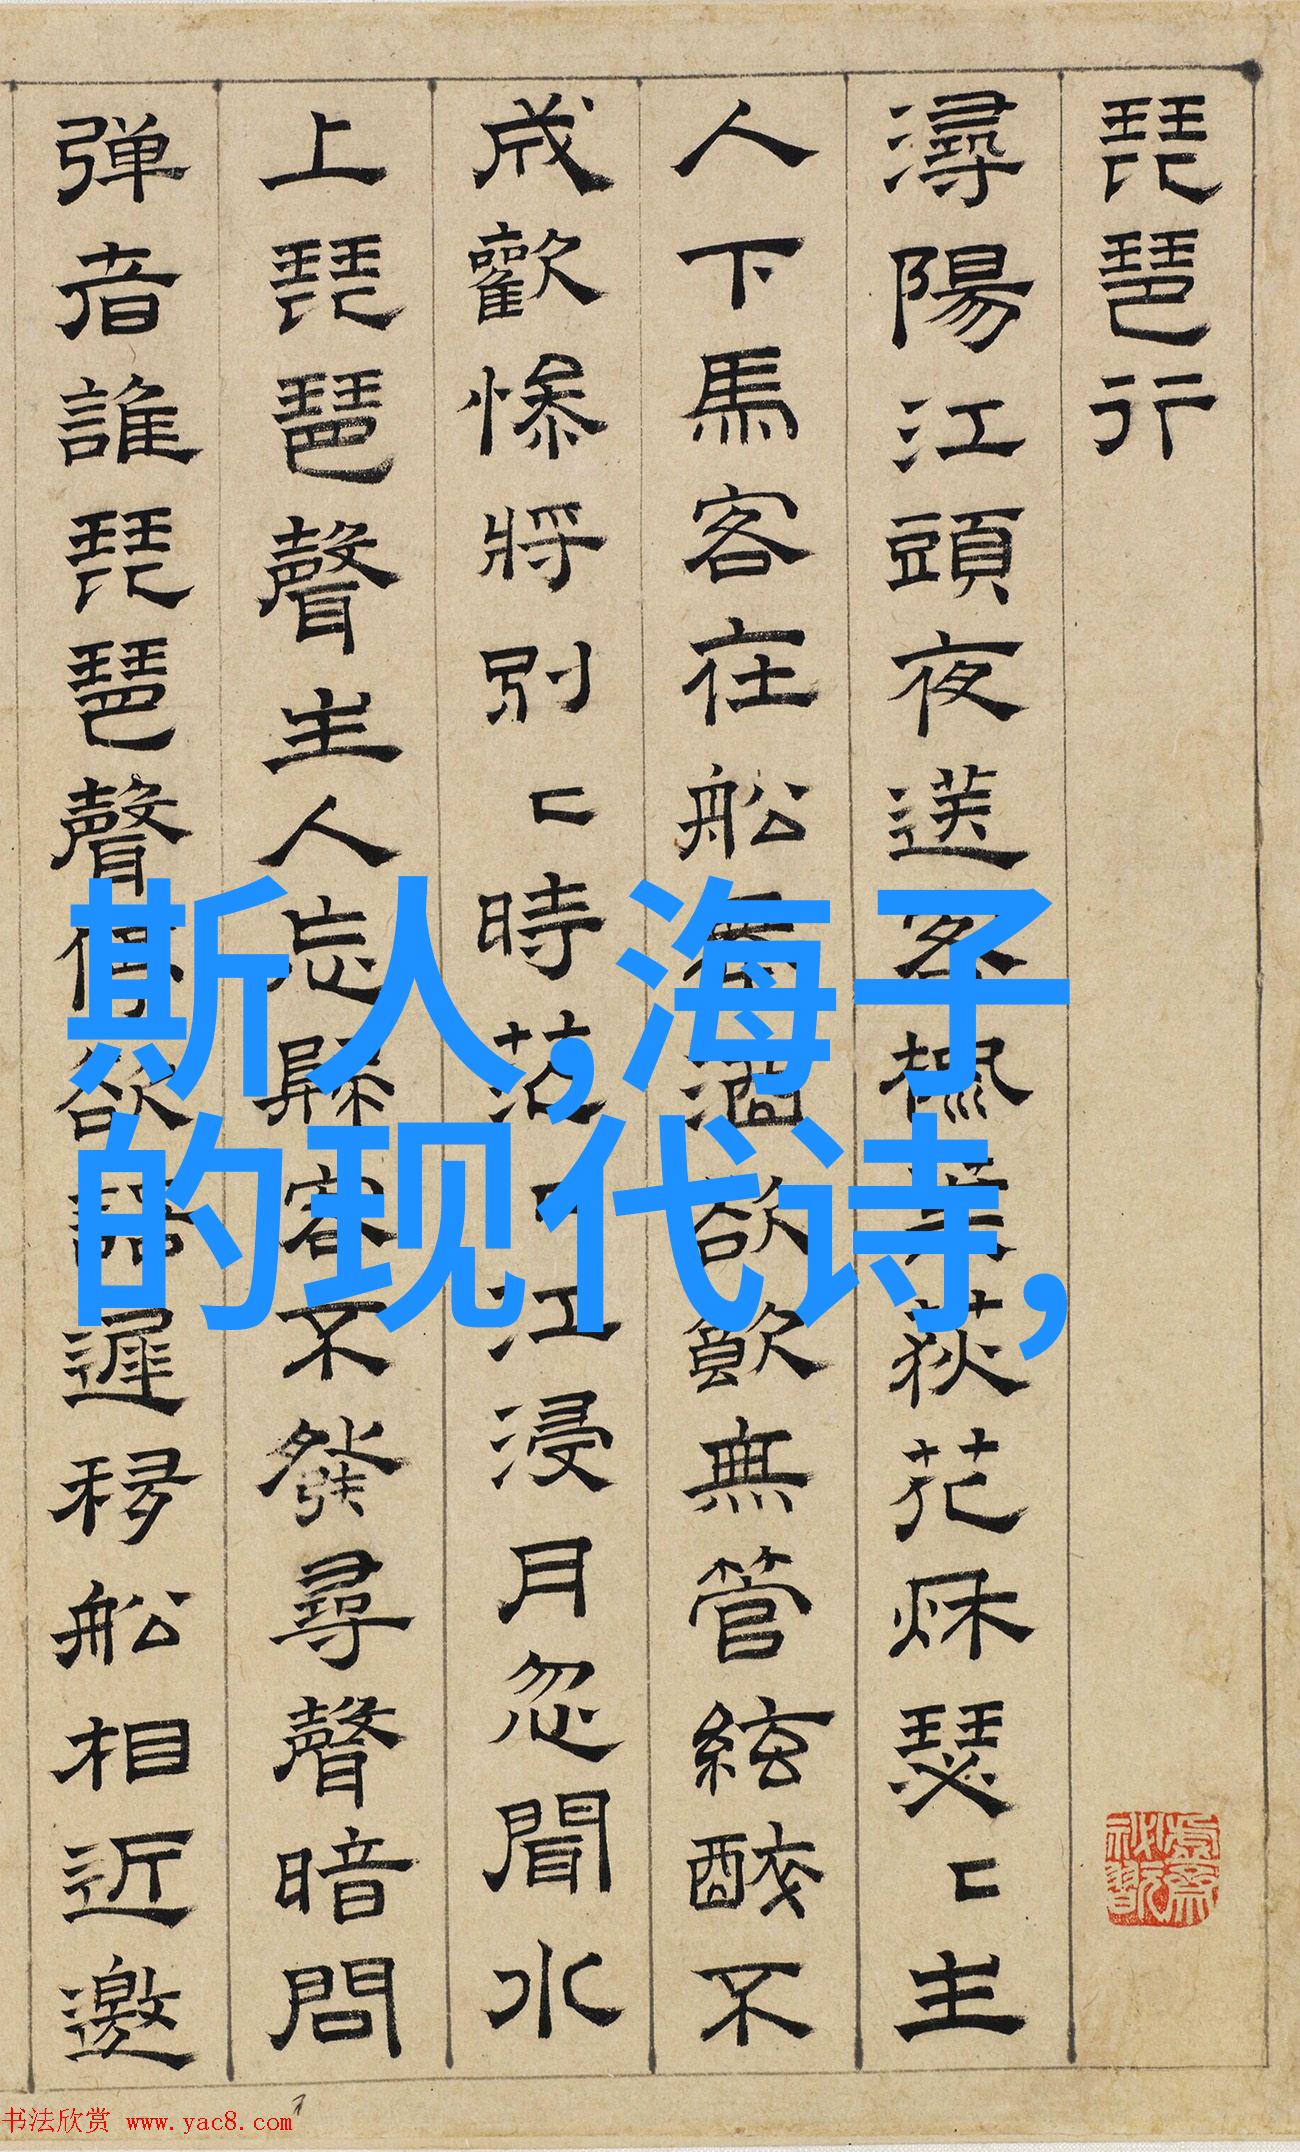 琵琶行
潯陽江頭夜送客楓葉荻花秋瑟〻主
人下馬客在船舉酒欲飲無管絃醉不
成歡慘將別〻時茫〻江浸月忽聞水
上琵琶聲主人忘歸客不發尋聲暗問
弹者誰琵琶聲停欲語遲移船相近邀
斯人,海子
的现代诗,
书法欣赏 www.yac8.com